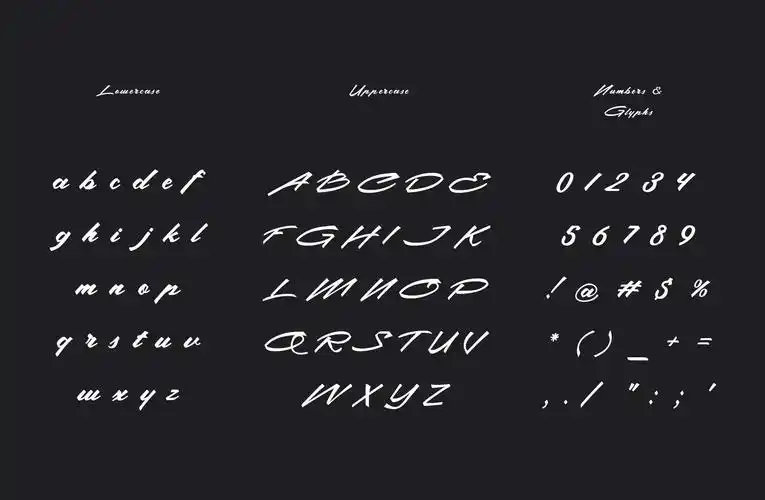 Lowercase
a b c d e f
g h i j k l
m n o p
q r s t u v
w x y z
Uppercase
A B C D E
F G H I J K
L M N O P
Q R S T U V
W X Y Z
Numbers &
Glyphs
0 1 2 3 4
5 6 7 8 9
! @ # $ %
* ( ) _ + =
, . / " : ; '